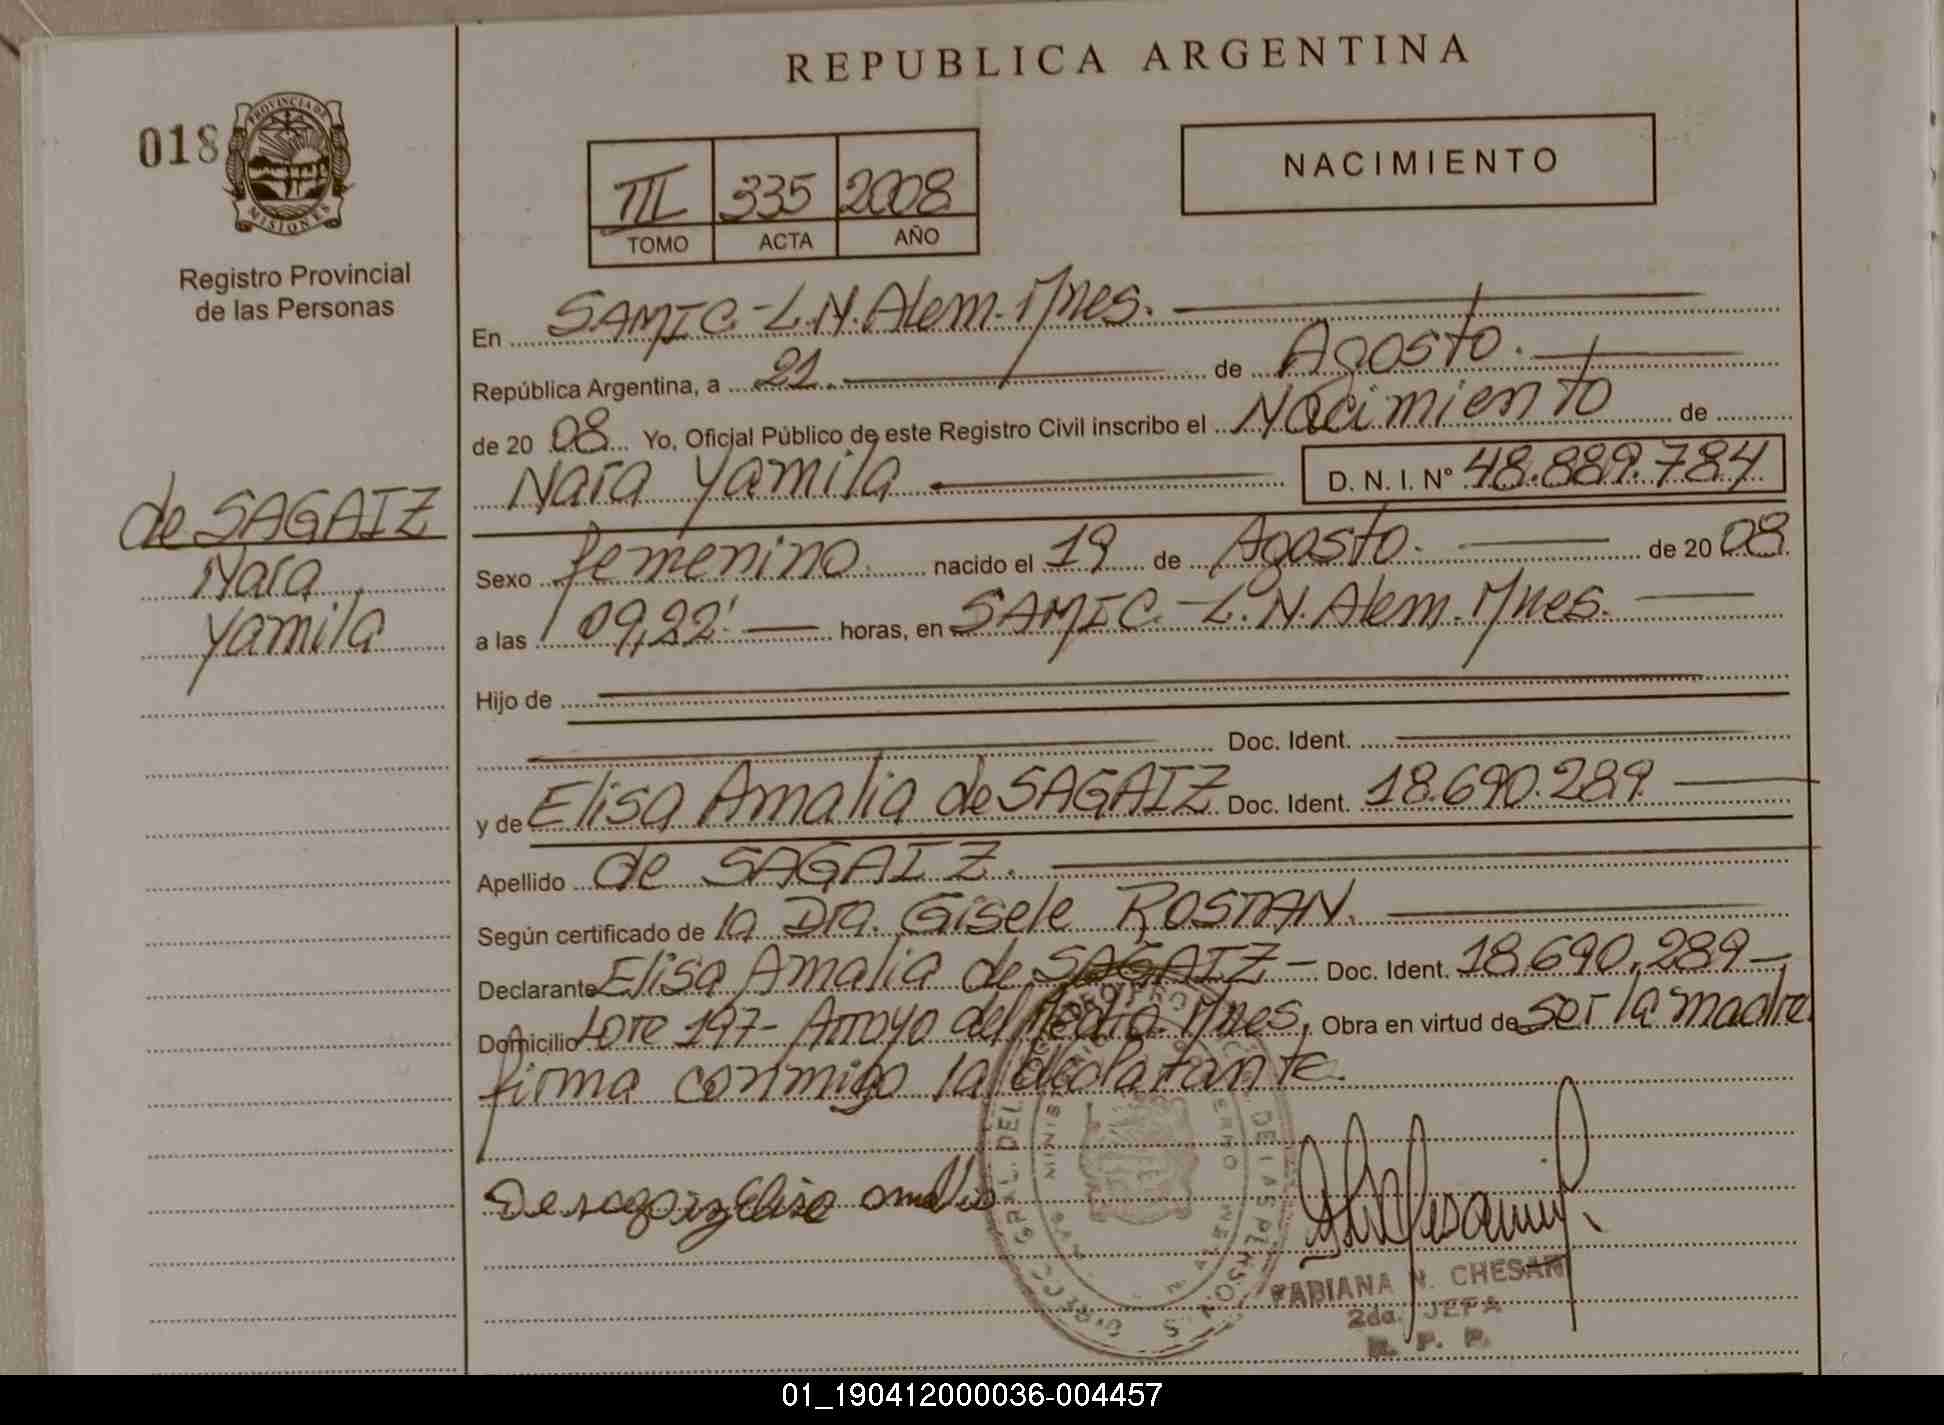 REPUBLICA ARGENTINA
018
PROVINCIA DE
MISIONES
Registro Provincial
de las Personas
III 335 2008
TOMO ACTA AÑO
NACIMIENTO
En SAMIC.-L.N.Alem.Mnes.
República Argentina, a 21 de Agosto.
de 20 08 Yo, Oficial Público de este Registro Civil inscribo el Nacimiento de
Nara Yamila D. N. I. Nº 48.889.784
de SAGAIZ
Nara
Yamila
Sexo femenino. nacido el 19 de Agosto. de 20 08.
a las 09,22' horas, en SAMIC.-L.N.Alem.Mnes.
Hijo de
Doc. Ident.
y de Elisa Amalia de SAGAIZ Doc. Ident. 18.690.289
Apellido de SAGAIZ.
Según certificado de la Dra. Gisele ROSTAN.
Declarante Elisa Amalia de SAGAIZ - Doc. Ident. 18.690.289
Domicilio Lote 197- Arroyo del Medio Mnes. Obra en virtud de ser la madre
firma conmigo la declarante.
Desagaiz Elisa amalia
FABIANA N. CHESANI
2da. JEFA
R. P. P.
01_190412000036-004457